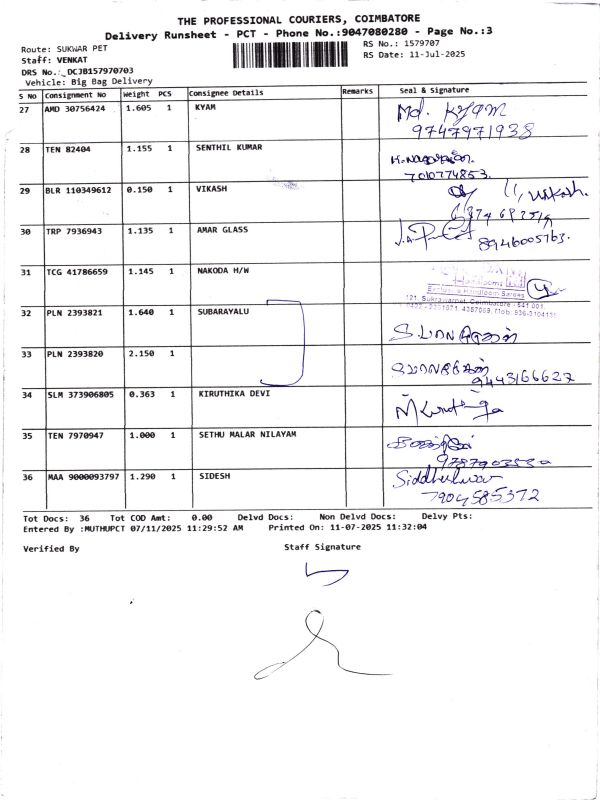 THE PROFESSIONAL COURIERS, COIMBATORE
Delivery Runsheet - PCT - Phone No.:9047080280 - Page No.:3
Route: SUKWAR PET
RS No.: 1579707
Staff: VENKAT
RS Date: 11-Jul-2025
DRS No.:_DCJB157970703
Vehicle: Big Bag Delivery
S No Consignment No Weight PCS Consignee Details Remarks Seal & Signature
27 AMD 30756424 1.605 1 KYAM Md. KYAM
9747971938
28 TEN 82404 1.155 1 SENTHIL KUMAR
7010774853
29 BLR 110349612 0.150 1 VIKASH
30 TRP 7936943 1.135 1 AMAR GLASS
8946005763.
31 TCG 41786659 1.145 1 NAKODA H/W
Exclusive Handloom Sarees
121, Sukrawarpet, Coimbatore - 641 001.
32 PLN 2393821 1.640 1 SUBARAYALU
33 PLN 2393820 2.150 1
9443166627
34 SLM 373906805 0.363 1 KIRUTHIKA DEVI
35 TEN 7970947 1.000 1 SETHU MALAR NILAYAM
36 MAA 9000093797 1.290 1 SIDESH Siddheshwar
7904585372
Tot Docs: 36 Tot COD Amt: 0.00 Delvd Docs: Non Delvd Docs: Delvy Pts:
Entered By :MUTHUPCT 07/11/2025 11:29:52 AM Printed On: 11-07-2025 11:32:04
Verified By Staff Signature